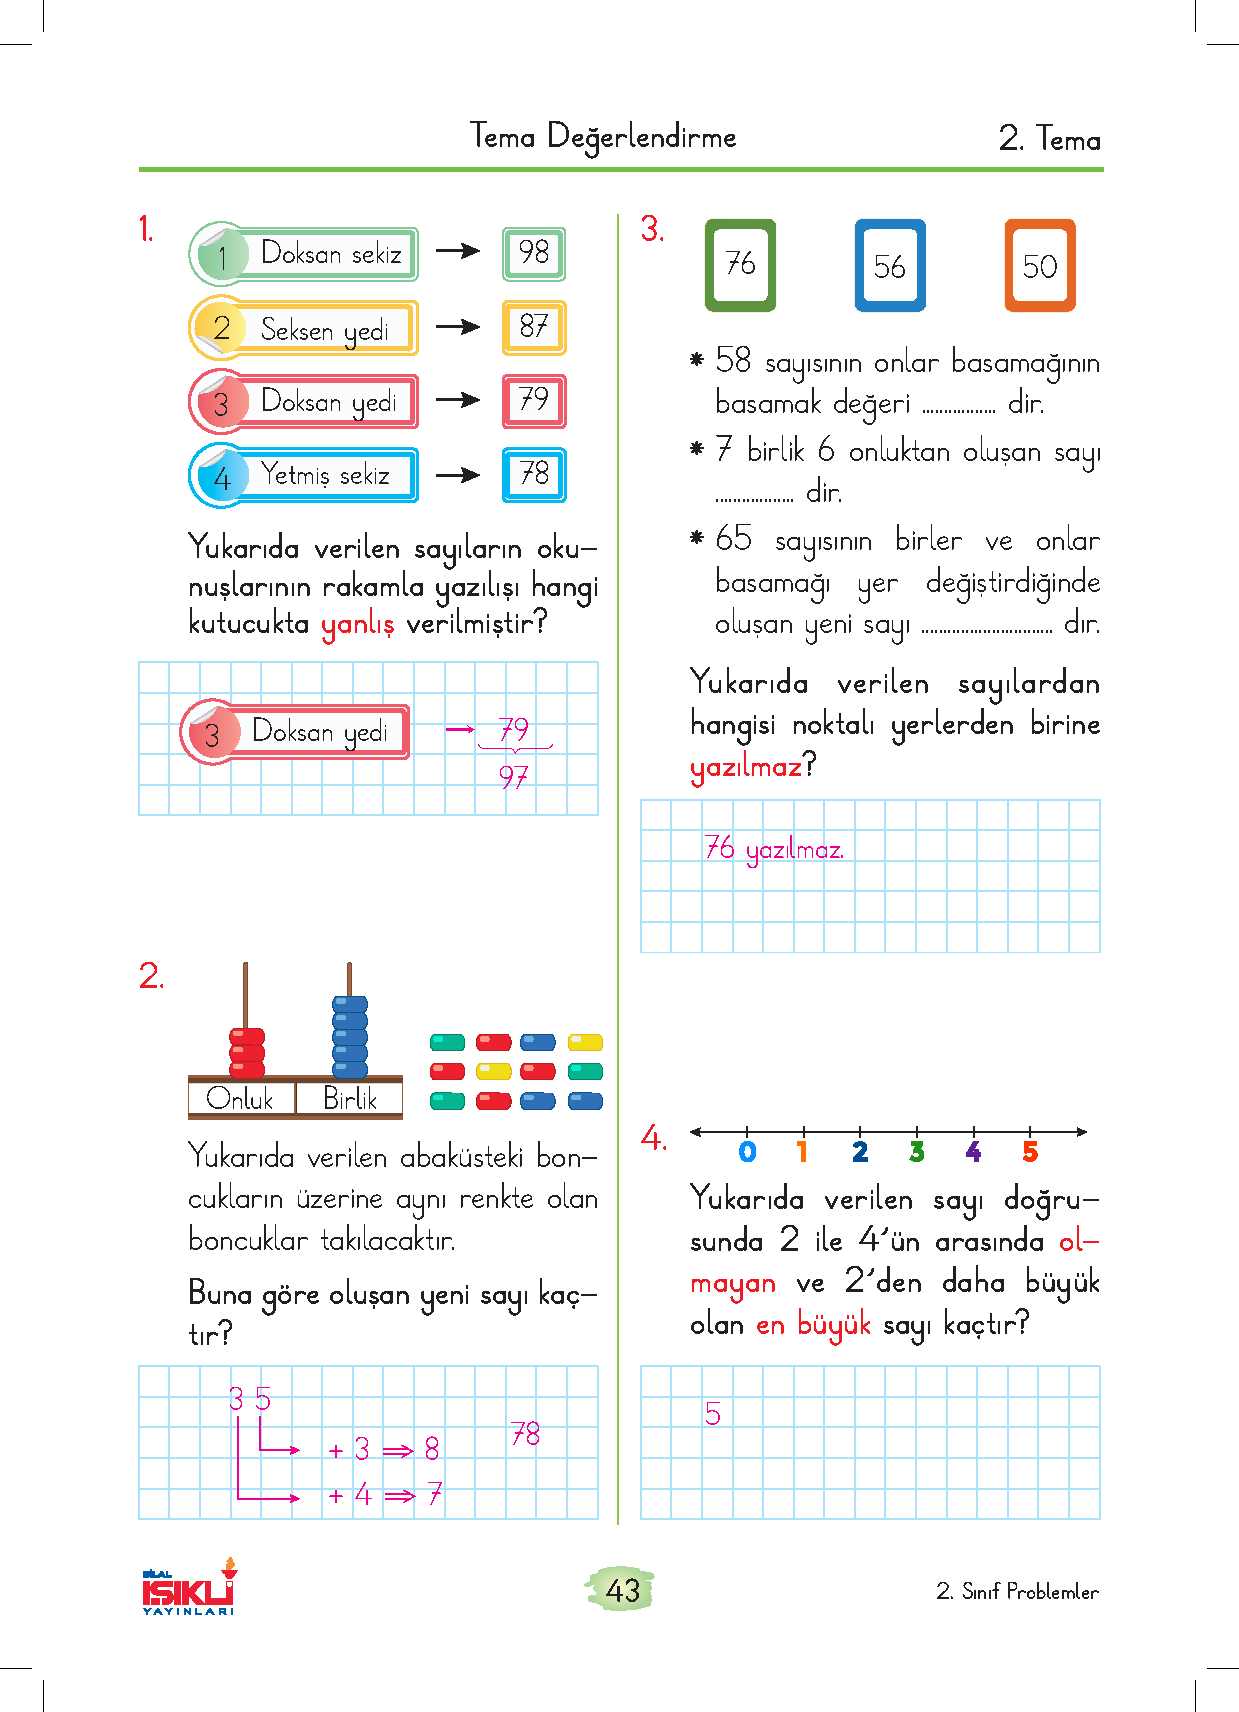 Tema Değerlendirme
2. Tema
1.
1 Doksan sekiz 98
2 Seksen yedi 87
3 Doksan yedi 79
4 Yetmiş sekiz 78
Yukarıda verilen sayıların oku-
nuşlarının rakamla yazılışı hangi
kutucukta yanlış verilmiştir?
3 Doksan yedi 79
97
2.
Onluk Birlik
Yukarıda verilen abaküsteki bon-
cukların üzerine aynı renkte olan
boncuklar takılacaktır.
Buna göre oluşan yeni sayı kaç-
tır?
3 5
+ 3 ⇒ 8
78
+ 4 ⇒ 7
3.
76 56 50
* 58 sayısının onlar basamağının
basamak değeri ................. dir.
* 7 birlik 6 onluktan oluşan sayı
.................. dir.
* 65 sayısının birler ve onlar
basamağı yer değiştirdiğinde
oluşan yeni sayı .............................. dır.
Yukarıda verilen sayılardan
hangisi noktalı yerlerden birine
yazılmaz?
76 yazılmaz.
4.
0 1 2 3 4 5
Yukarıda verilen sayı doğru-
sunda 2 ile 4'ün arasında ol-
mayan ve 2'den daha büyük
olan en büyük sayı kaçtır?
5
BİLAL
IŞIKLI
YAYINLARI
43
2. Sınıf Problemler